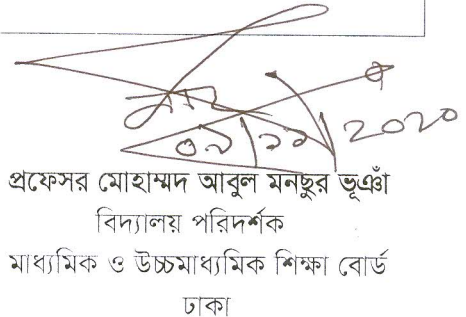 প্রফেসর মোহাম্মদ আবুল মনছুর ভূঞাঁ
বিদ্যালয় পরিদর্শক
মাধ্যমিক ও উচ্চমাধ্যমিক শিক্ষা বোর্ড
ঢাকা